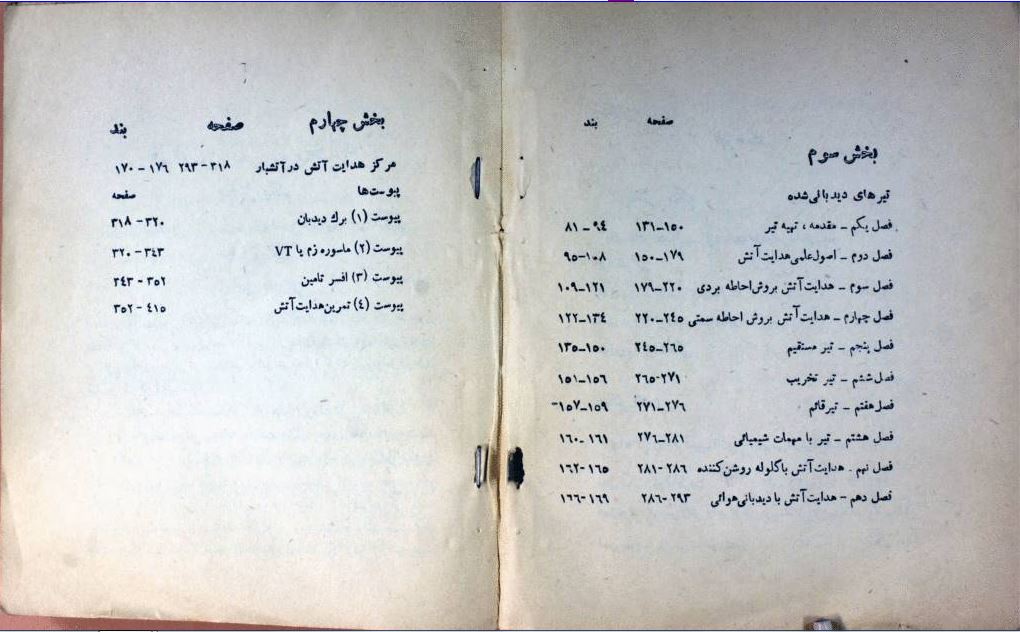 صفحه بند
بخش سوم
تیرهای دیدبانی‌شده
فصل یکم – مقدمه ، تهیه تیر ۱۵۰–۱۳۱ ۹٤–۸۱
فصل دوم – اصول علمی هدایت آتش ۱۷۹–۱۵۰ ۱۰۸–۹۵
فصل سوم – هدایت آتش بروش احاطه بردی ۲۲۰–۱۷۹ ۱۲۱–۱۰۹
فصل چهارم – هدایت آتش بروش احاطه سمتی ۲٤۵–۲۲۰ ۱۳٤–۱۲۲
فصل پنجم – تیر مستقیم ۲٦۵–۲٤۵ ۱۵۰–۱۳۵
فصل ششم – تیر تخریب ۲۷۱-۲٦۵ ۱۵٦–۱۵۱
فصل هفتم – تیر قائم ۲۷٦–۲۷۱ ۱۵۹–۱۵۷
فصل هشتم – تیر با مهمات شیمیائی ۲۸۱–۲۷٦ ۱٦۱–۱٦۰
فصل نهم – هدایت آتش با گلوله روشن کننده ۲۸٦-۲۸۱ ۱٦۵-۱٦۲
فصل دهم – هدایت آتش با دیدبانی هوائی ۲۹۳-۲۸٦ ۱٦۹-۱٦٦
بخش چهارم صفحه بند
مرکز هدایت آتش در آتشبار ۳۱۸–۲۹۳ ۱۷٦–۱۷۰
پیوست‌ها صفحه
پیوست (۱) برك دیدبان ۳۲۰–۳۱۸
پیوست (۲) ماسوره زم یا VT ۳٤۳–۳۲۰
پیوست (۳) افسر تامین ۳۵۲–۳٤۳
پیوست (٤) تمرین هدایت آتش ٤۱۵–۳۵۲